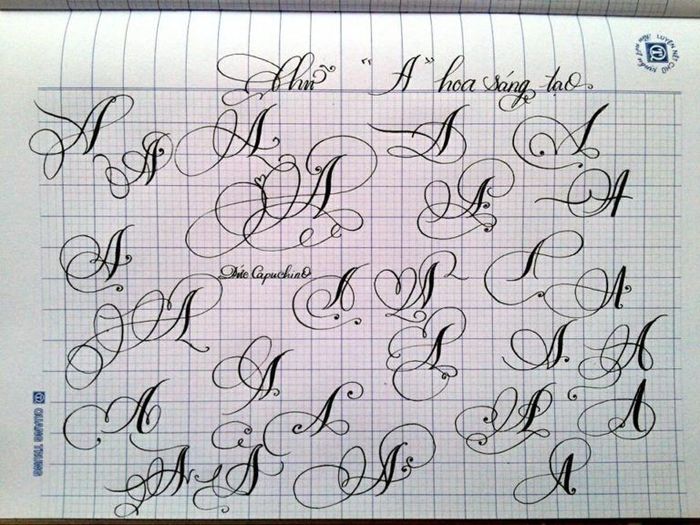 Chữ "A" hoa sáng tạo
A A A A A
A A A
A
Đức Capuchino
A A A A
A
A A A A
A A A A A
A A A A
QUANG TRUNG